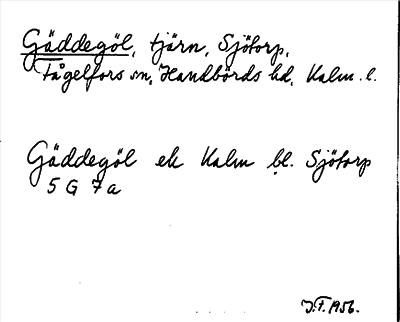 Gäddegöl, tjärn, Sjötorp,
Fågelfors sn, Handbörds hd, Kalm. l.
Gäddegöl ek Kalm bl. Sjötorp
5 G 7 a
J.F. 1956.